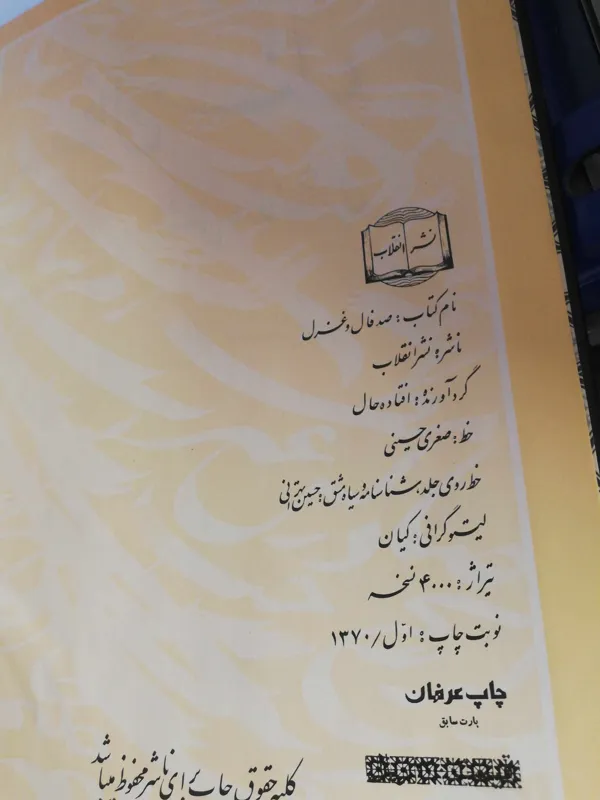 نشر انقلاب
نام کتاب: صد فال و غزل
ناشر: نشر انقلاب
گردآورنده: افتاده حال
خط: صغری حسینی
خط روی جلد، شناسنامه و سیاه مشق: حسین بهترانی
لیتوگرافی: کیان
تیراژ: ۴۰۰۰ نسخه
نوبت چاپ: اوّل/۱۳۷۰
چاپ عرفان
پارت سابق
کلیه حقوق چاپ برای ناشر محفوظ میباشد